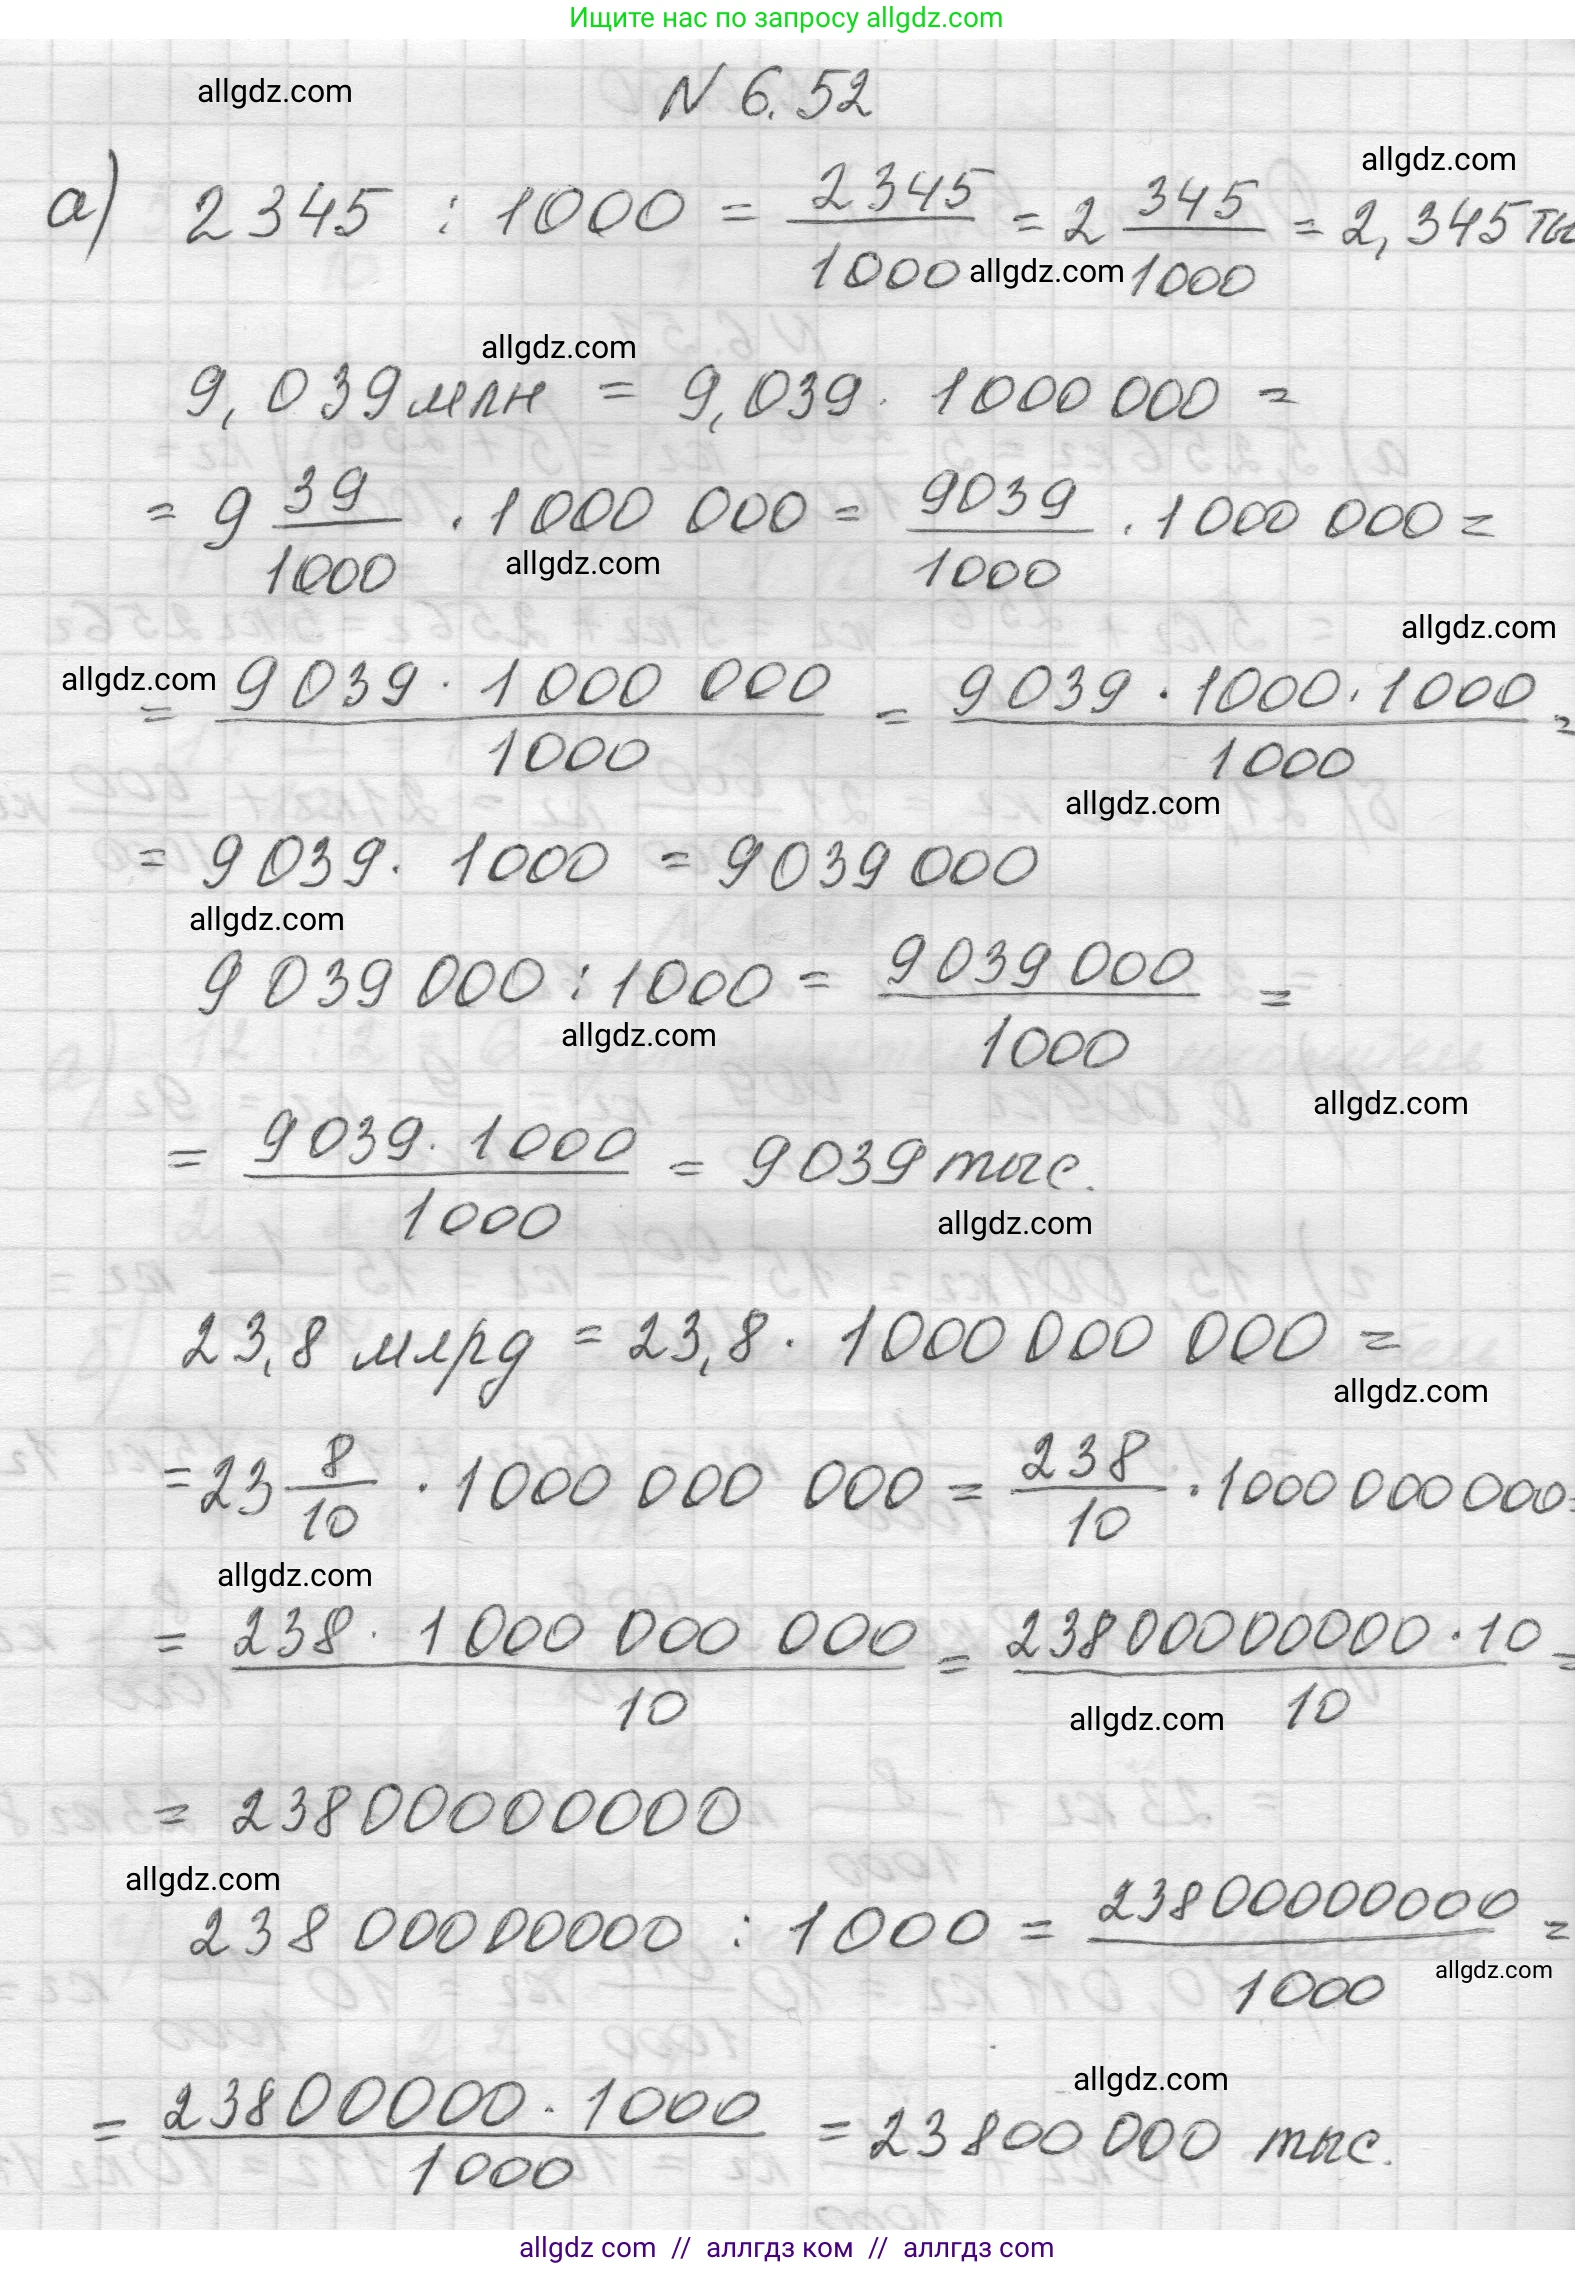 Ищите нас по запросу allgdz.com
allgdz.com
N 6.52
allgdz.com
а) 2345 : 1000 = 2345/1000 = 2 345/1000 = 2,345 ты
allgdz.com
allgdz.com
9,039 млн = 9,039 · 1000 000 =
= 9 39/1000 · 1000 000 = 9039/1000 · 1000 000 =
allgdz.com
allgdz.com
allgdz.com
= 9039 · 1000 000/1000 = 9039 · 1000 · 1000/1000 =
allgdz.com
= 9039 · 1000 = 9039 000
allgdz.com
9 039 000 : 1000 = 9039 000/1000 =
allgdz.com
allgdz.com
= 9039 · 1000/1000 = 9039 тыс.
allgdz.com
23,8 млрд = 23,8 · 1000 000 000 =
allgdz.com
= 23 8/10 · 1000 000 000 = 238/10 · 1000 000 000 =
allgdz.com
= 238 · 1000 000 000/10 = 23800000000 · 10/10 =
allgdz.com
= 23800000000
allgdz.com
23800000000 : 1000 = 23800000000/1000 =
allgdz.com
allgdz.com
= 23800000 · 1000/1000 = 23800 000 тыс.
allgdz com // аллгдз ком // аллгдз com